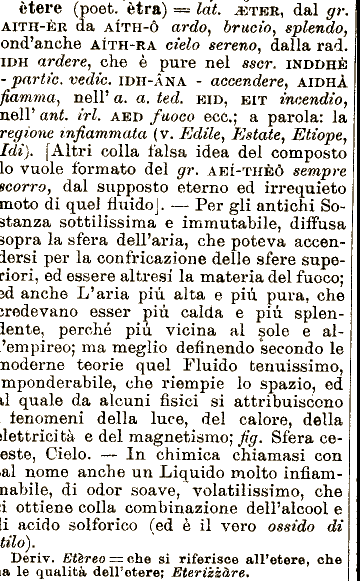 ètere (poet. ètra) = lat. ÆTER, dal gr.
AITH-ÈR da AÍTH-Ô ardo, brucio, splendo,
ond'anche AÍTH-RA cielo sereno, dalla rad.
IDH ardere, che è pure nel sscr. INDDHÈ
- partic. vedic. IDH-ÂNA - accendere, AIDHÀ
fiamma, nell' a. a. ted. EID, EIT incendio,
nell' ant. irl. AED fuoco ecc.; a parola: la
regione infiammata (v. Edile, Estate, Etiope,
Idi). [Altri colla falsa idea del composto
lo vuole formato del gr. AEÍ-THÈÔ sempre
scorro, dal supposto eterno ed irrequieto
moto di quel fluido]. — Per gli antichi So-
stanza sottilissima e immutabile, diffusa
sopra la sfera dell'aria, che poteva accen-
dersi per la confricazione delle sfere supe-
riori, ed essere altresí la materia del fuoco;
ed anche L'aria piú alta e piú pura, che
credevano esser piú calda e piú splen-
dente, perché piú vicina al sole e al-
l'empireo; ma meglio definendo secondo le
moderne teorie quel Fluido tenuissimo,
imponderabile, che riempie lo spazio, ed
al quale da alcuni fisici si attribuiscono
i fenomeni della luce, del calore, della
elettricità e del magnetismo; fig. Sfera ce-
leste, Cielo. — In chimica chiamasi con
tal nome anche un Liquido molto infiam-
mabile, di odor soave, volatilissimo, che
si ottiene colla combinazione dell'alcool e
di acido solforico (ed è il vero ossido di
etilo).
Deriv. Etèreo = che si riferisce all'etere, che
ha le qualità dell'etere; Eterizzàre.